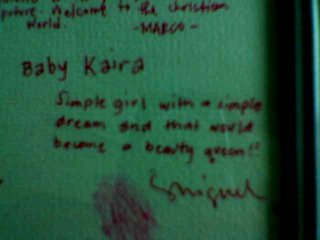 future. Welcome to the christian
World.
-MARCO-
Baby Kaira
Simple girl with a simple
dream and that would
become a beauty queen!!